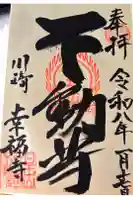 奉拝
令和八年一月吉日
不動尊
川崎
幸福寺